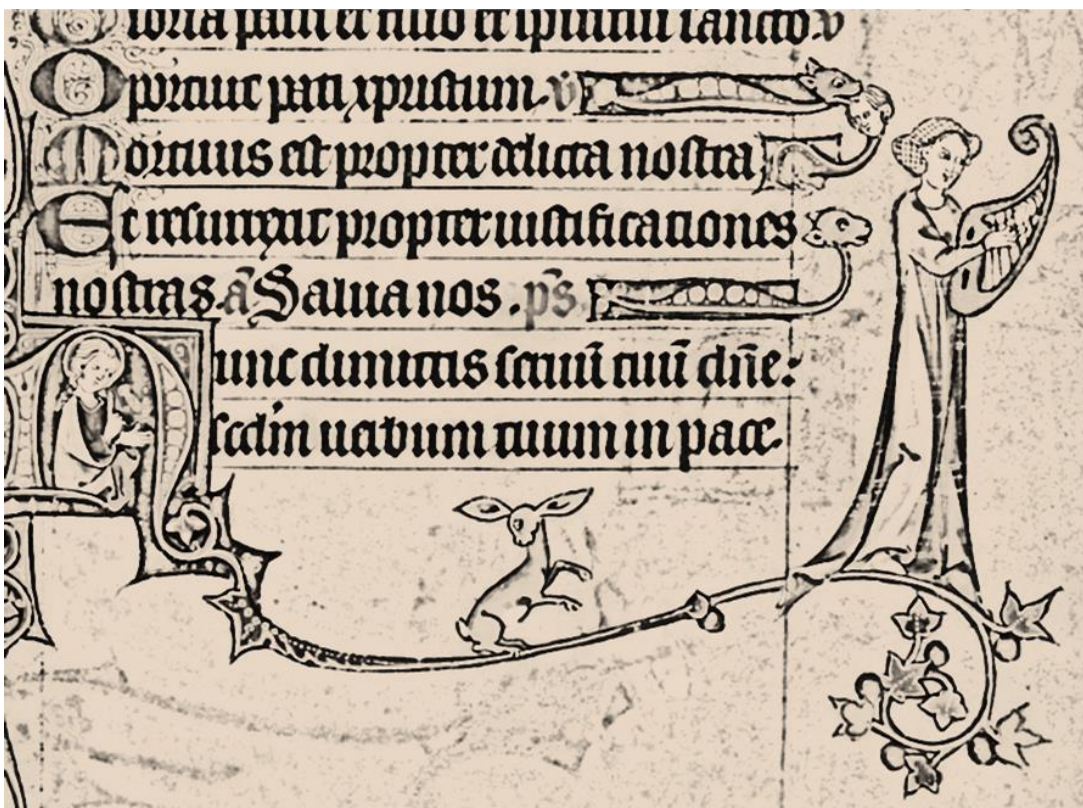 Gloria patri et filio et spiritui sancto. v
Oportuit pati xpristum. v
Mortuus est propter delicta nostra
Et resurrexit propter iustificationes
nostras. ā Salua nos. ps̄
Nunc dimittis seruū tuū dn̄e:
scdm̄ uerbum tuum in pace.